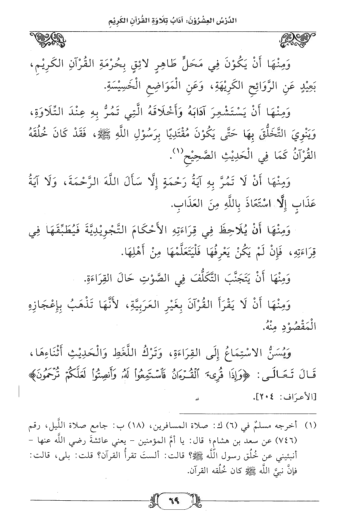 الدَّرْسُ العِشْرُونَ: آدَابُ تِلَاوَةِ القُرْآنِ الكَرِيْمِ
وَمِنْهَا أَنْ يَكُوْنَ فِي مَحَلٍّ طَاهِرٍ لائِقٍ بِحُرْمَةِ القُرْآنِ الكَرِيْمِ،
بَعِيْدٍ عَنِ الرَّوَائِحِ الكَرِيْهَةِ، وَعَنِ الْمَوَاضِعِ الْخَسِيْسَةِ.
وَمِنْهَا أَنْ يَسْتَشْعِرَ آدَابَهُ وَأَخْلَاقَهُ الَّتِي تَمُرُّ بِهِ عِنْدَ التِّلَاوَةِ،
وَيَنْوِيَ التَّخَلُّقَ بِهَا حَتَّى يَكُوْنَ مُقْتَدِيًا بِرَسُوْلِ اللَّهِ ﷺ، فَقَدْ كَانَ خُلُقَهُ
القُرْآنُ كَمَا فِي الْحَدِيْثِ الصَّحِيْحِ(١).
وَمِنْهَا أَنْ لَا تَمُرَّ بِهِ آيَةُ رَحْمَةٍ إِلَّا سَأَلَ اللَّهَ الرَّحْمَةَ، وَلَا آيَةُ
عَذَابٍ إِلَّا اسْتَعَاذَ بِاللَّهِ مِنَ العَذَابِ.
وَمِنْهَا أَنْ يُلَاحِظَ فِي قِرَاءَتِهِ الأَحْكَامَ التَّجْوِيْدِيَّةَ فَيُطَبِّقَهَا فِي
قِرَاءَتِهِ، فَإِنْ لَمْ يَكُنْ يَعْرِفُهَا فَلْيَتَعَلَّمْهَا مِنْ أَهْلِهَا.
وَمِنْهَا أَنْ يَتَجَنَّبَ التَّكَلُّفَ فِي الصَّوْتِ حَالَ القِرَاءَةِ.
وَمِنْهَا أَنْ لَا يَقْرَأَ القُرْآنَ بِغَيْرِ العَرَبِيَّةِ، لأَنَّهَا تَذْهَبُ بِإِعْجَازِهِ
الْمَقْصُوْدِ مِنْهُ.
وَيُسَنُّ الاسْتِمَاعُ إِلَى القِرَاءَةِ، وَتَرْكُ اللَّغَطِ وَالْحَدِيْثِ أَثْنَاءَهَا،
قَالَ تَعَالَى: ﴿وَإِذَا قُرِئَ ٱلْقُرْءَانُ فَٱسْتَمِعُوا۟ لَهُۥ وَأَنصِتُوا۟ لَعَلَّكُمْ تُرْحَمُونَ﴾
[الأعرَاف: ٢٠٤].
(١) أخرجه مسلمٌ في (٦) ك: صلاة المسافرين، (١٨) ب: جامع صلاة اللَّيل، رقم
(٧٤٦) عن سعد بن هشام؛ قال: يا أمَّ المؤمنين – يعني عائشةَ رضي اللَّه عنها –
أنبئيني عن خُلُق رسول اللَّه ﷺ؟ قالت: ألستَ تقرأُ القرآن؟ قلت: بلى، قالت:
فإنَّ نبيَّ اللَّه ﷺ كان خُلُقه القرآن.
٦٩